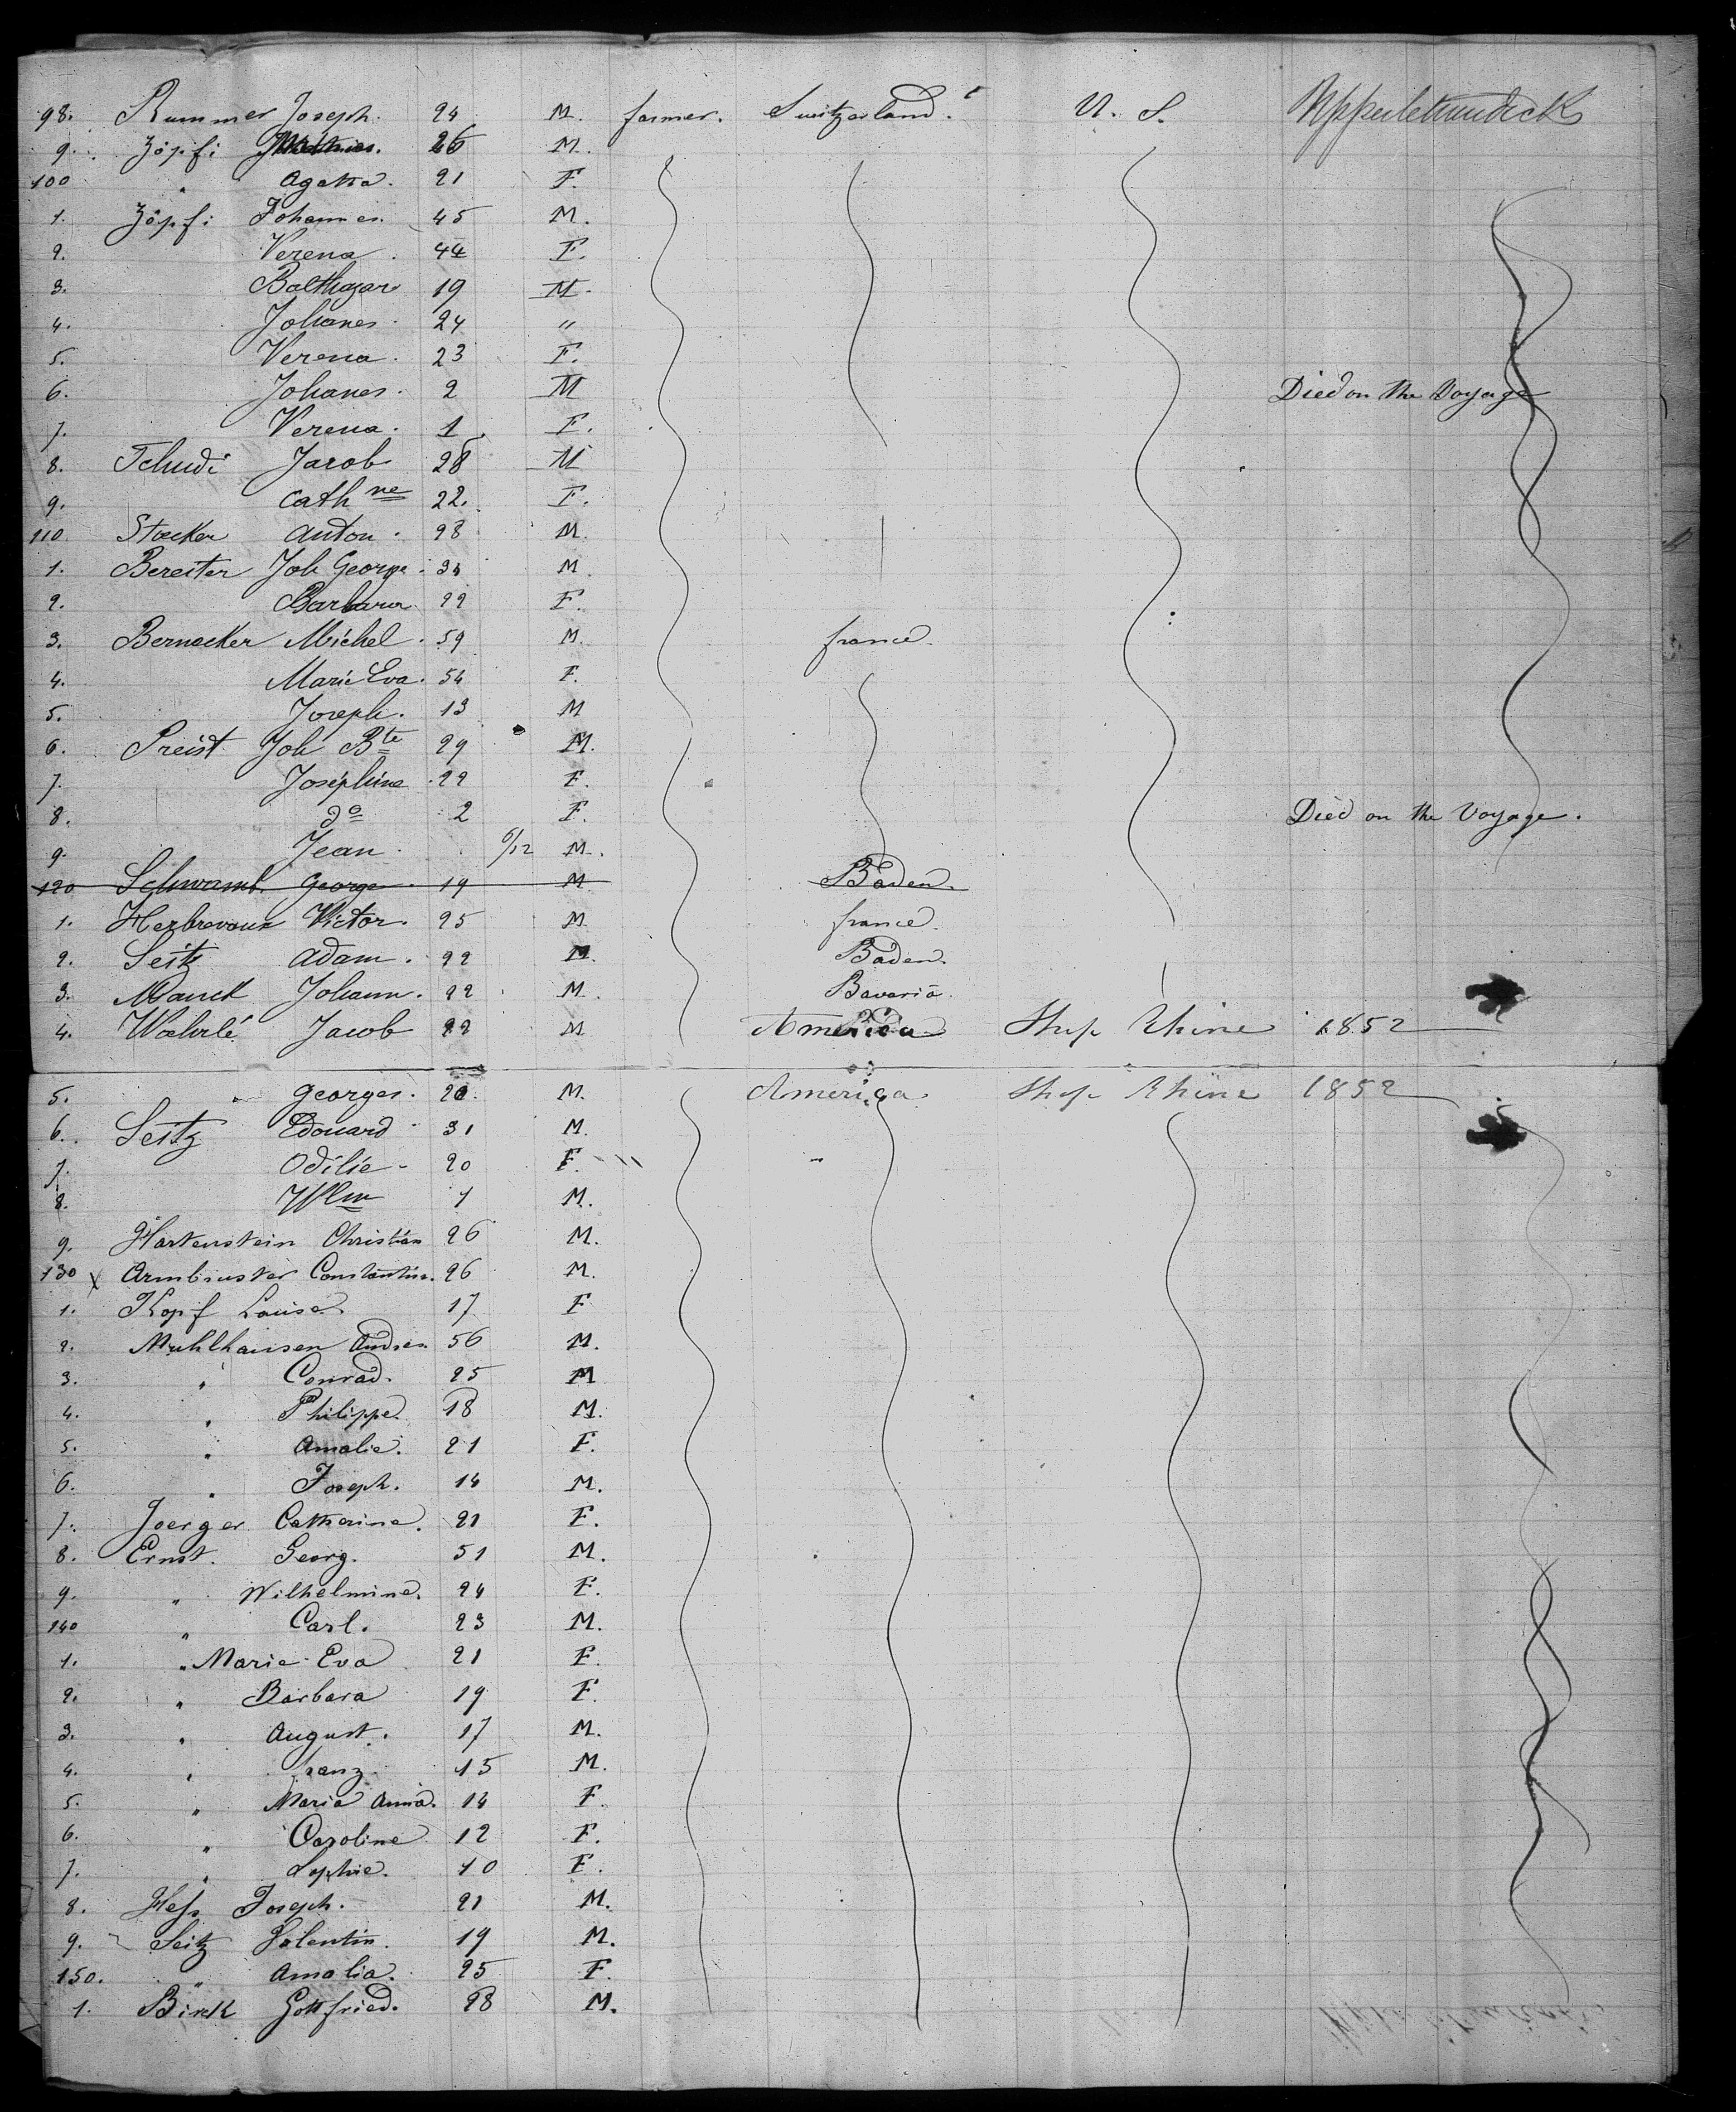 98. Rummer Joseph. 24 M. farmer. Switzerland. U. S.
9. Zöpfi 26 M.
100 " Agatha. 21 F.
1. Zöpfi Johannes. 45 M.
2. Verena. 44 F.
3. Balthazar 19 M.
4. Johanes. 24 "
5. Verena. 23 F.
6. Johanes. 2 M Died on the Voyage
7. Verena. 1. F.
8. Tchudi Jacob 28 M
9. Cath ne 22. F.
110 Stocker Anton. 28 M.
1. Bereiter Joh George. 34 M.
2. Barbara. 22 F.
3. Bernecker Michel. 59 M. france.
4. Marie Eva. 54 F.
5. Joseph. 13 M
6. Preist Joh Bte 29 M.
7. Joséphine. 22 F.
8. do 2 F. Died on the Voyage.
9. Jean. 6/12 M.
120 Schwamb. George. 19 M Baden.
1. Herbrevoux Victor. 25 M. france.
2. Seitz Adam. 22 M. Baden.
3. Manck Johann. 22 M. Bavaria.
4. Woehrlé Jacob 22 M America Ship Rhine 1852
5. " Georges. 20. M. America Ship Rhine 1852
6. Seitz Edouard 31 M.
7. Odilie. 20 F. "
8. Wlm 1 M.
9. Hartenstein Christian 26 M.
130 x Armbruster Constantin. 26 M.
1. Kopf Louise. 17 F
2. Muhlhausen Andres. 56 M.
3. " Conrad. 25 M
4. " Philippe. 18 M.
5. " Amalie. 21 F.
6. " Joseph. 14 M.
7. Joerger Catherine. 21 F.
8. Ernst. Georg. 51 M.
9. " Wilhelmine. 24 F.
140 " Carl. 23 M.
1. " Marie Eva 21 F.
2. " Barbara 19 F.
3. " August. 17 M.
4. " franz. 15 M.
5. " Maria Anna. 14 F.
6. " Caroline 12 F.
7. " Sophie. 10 F.
8. Hess Joseph. 21 M.
9. Seitz Valentin. 19 M.
150. " Amalia. 25 F.
1. Birck Gottfried. 28 M.